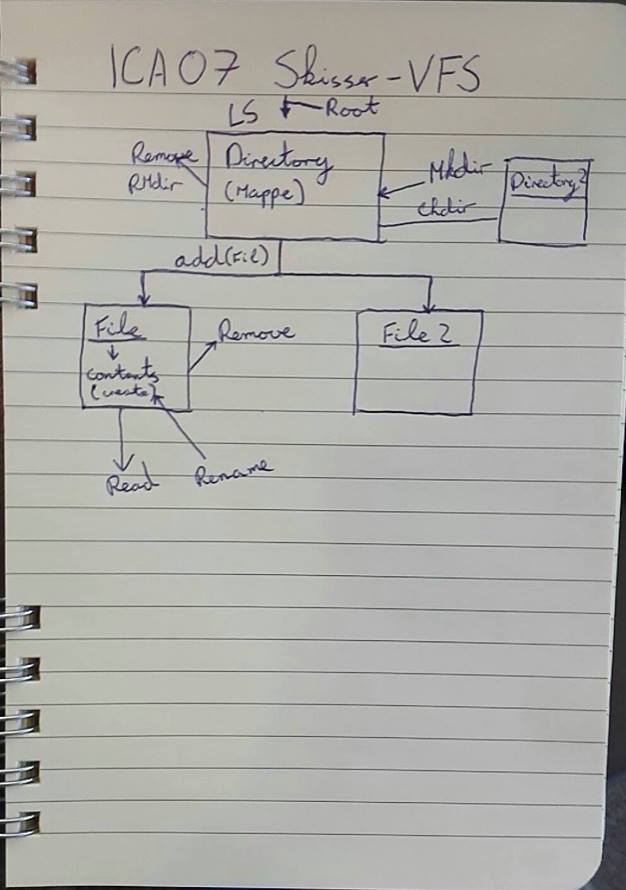 ICA07 Skisser - VFS
LS
Root
Remove
RMdir
Directory
(Mappe)
Mkdir
chdir
Directory 2
add(Fil)
File
contents
(create)
Remove
File 2
Read
Rename